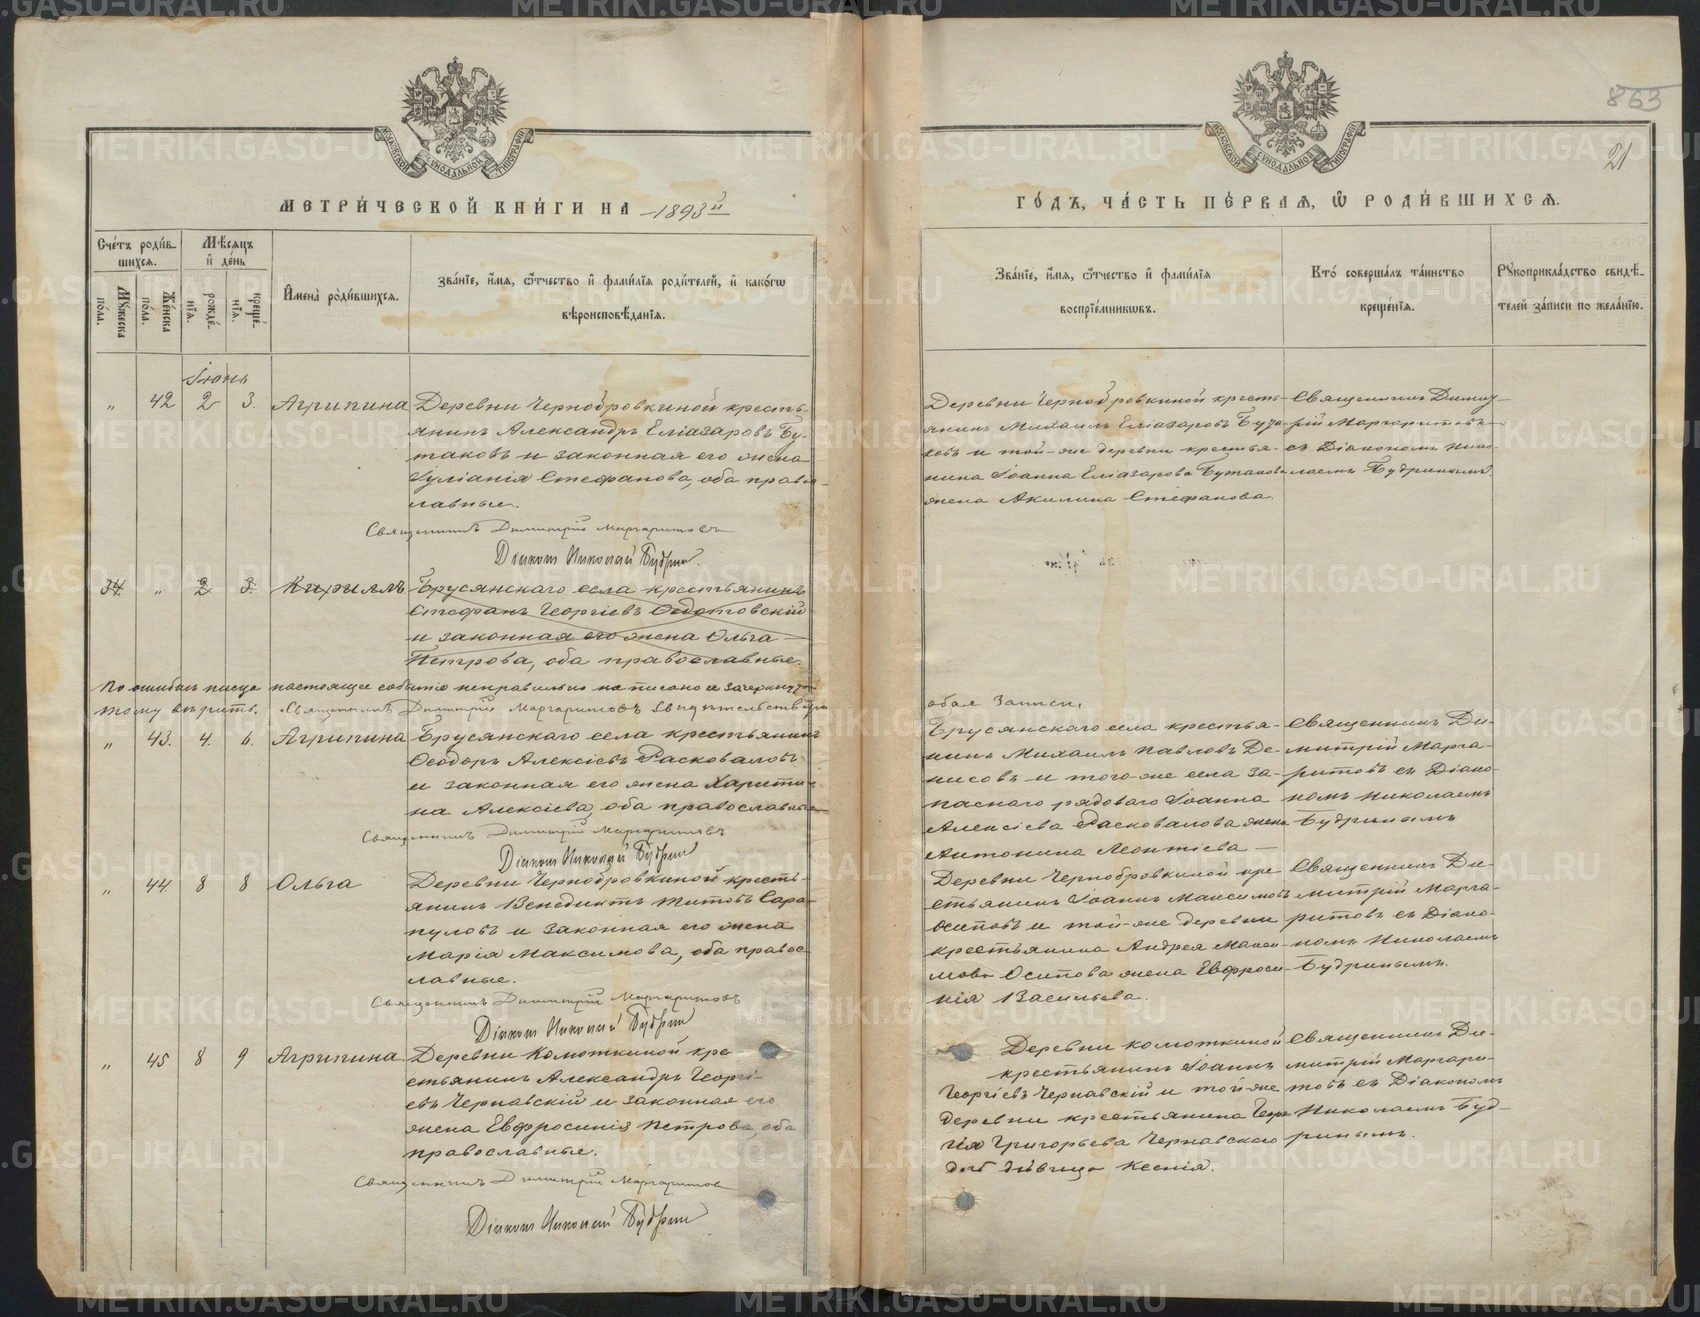 863
21
МОСКОВСКОЙ СѴНОДАЛЬНОЙ ТИПОГРАФІИ
МОСКОВСКОЙ СѴНОДАЛЬНОЙ ТИПОГРАФІИ
МЕТРИ́ЧЕСКОЙ КНИ́ГИ НА 1893й
ГО́ДЪ, ЧА́СТЬ ПЕ́РВАѦ, Ѿ РОДИ́ВШИХСѦ.
Сче́тъ роди́в-
шихсѧ.
Мѹжеска по́ла.
Же́нска по́ла.
Мѣ́сѧцъ
и҆ де́нь
рожде́-
нїѧ.
креще́-
нїѧ.
И҆мена̀ роди́вшихсѧ.
Зва́нїе, и҆́мѧ, ѻ҆́тчество и҆ фами́лїѧ роди́телей, и҆ како́гѡ
вѣроисповѣ́данїѧ.
Зва́нїе, и҆́мѧ, ѻ҆́тчество и҆ фами́лїѧ
воспрїе́мникѡвъ.
Кто̀ соверша́лъ та́инство
креще́нїѧ.
Рѹкоприкла́дство свидѣ́-
телей за́писи по жела́нїю.
Іюнь
" 42 2 3. Агрипина
Деревни Чернобровкиной кресть-
янинъ Александръ Еліазаровъ Бу-
таковъ и законная его жена
Іуліанія Стефанова, оба право-
славные.
Священникъ Димитрій Маргаритовъ
Діаконъ Николай Будринъ
Деревни Чернобровкиной кресть-
янинъ Михаилъ Еліазаровъ Бута-
ковъ и той-же деревни крестья-
нина Іоанна Еліазарова Бутакова
жена Акилина Стефанова.
Священникъ Димит-
рій Маргаритовъ
съ Діакономъ Нико-
лаемъ Будринымъ
34 " 2 3. Кириллъ
Брусянскаго села крестьянинъ
Стефанъ Георгіевъ Ѳедотовскій
и законная его жена Ольга
Петрова, оба православные.
По ошибкѣ писца настоящее событіе неправильно написано и зачеркнуто
тому вѣрить. Священникъ Димитрій Маргаритовъ Свидѣтельствую
обая записи.
" 43. 4. 6. Агрипина
Брусянскаго села крестьянинъ
Ѳеодоръ Алексіевъ Расковаловъ
и законная его жена Харити-
на Алексіева, оба православные
Священникъ Димитрій Маргаритовъ
Діаконъ Николай Будринъ
Брусянскаго села крестья-
нинъ Михаилъ Павловъ Де-
нисовъ и того-же села за-
паснаго рядоваго Іоанна
Алексіева Расковалова жена
Антонина Леонтіева —
Священникъ Ди-
митрій Марга-
ритовъ съ Діако-
номъ Николаемъ
Будринымъ
" 44. 8 8 Ольга
Деревни Чернобровкиной кресть-
янинъ Венедиктъ Титовъ Сара-
пуловъ и законная его жена
Марія Максимова, оба правос-
лавные.
Священникъ Димитрій Маргаритовъ
Діаконъ Николай Будринъ
Деревни Чернобровкиной кре
стьянинъ Іоаннъ Максимовъ
Осиповъ и той-же деревни
крестьянина Андрея Макси-
мова Осипова жена Евфроси-
нія Васильева.
Священникъ Ди-
митрій Марга-
ритовъ съ Діако-
номъ Николаемъ
Будринымъ.
" 45 8 9 Агрипина
Деревни Комоткиной кре
стьянинъ Александръ Георгі-
евъ Чернавскій и законная его
жена Евфросинія Петрова, оба
православные.
Священникъ Димитрій Маргаритовъ
Діаконъ Николай Будринъ
Деревни Комоткиной
крестьянинъ Іоаннъ
Георгіевъ Чернавскій и той-же
деревни крестьянина Геор
гія Григорьева Чернавскаго
дочь дѣвица Ксенія.
Священникъ Ди-
митрій Маргари-
товъ съ Діакономъ
Николаемъ Буд-
ринымъ.